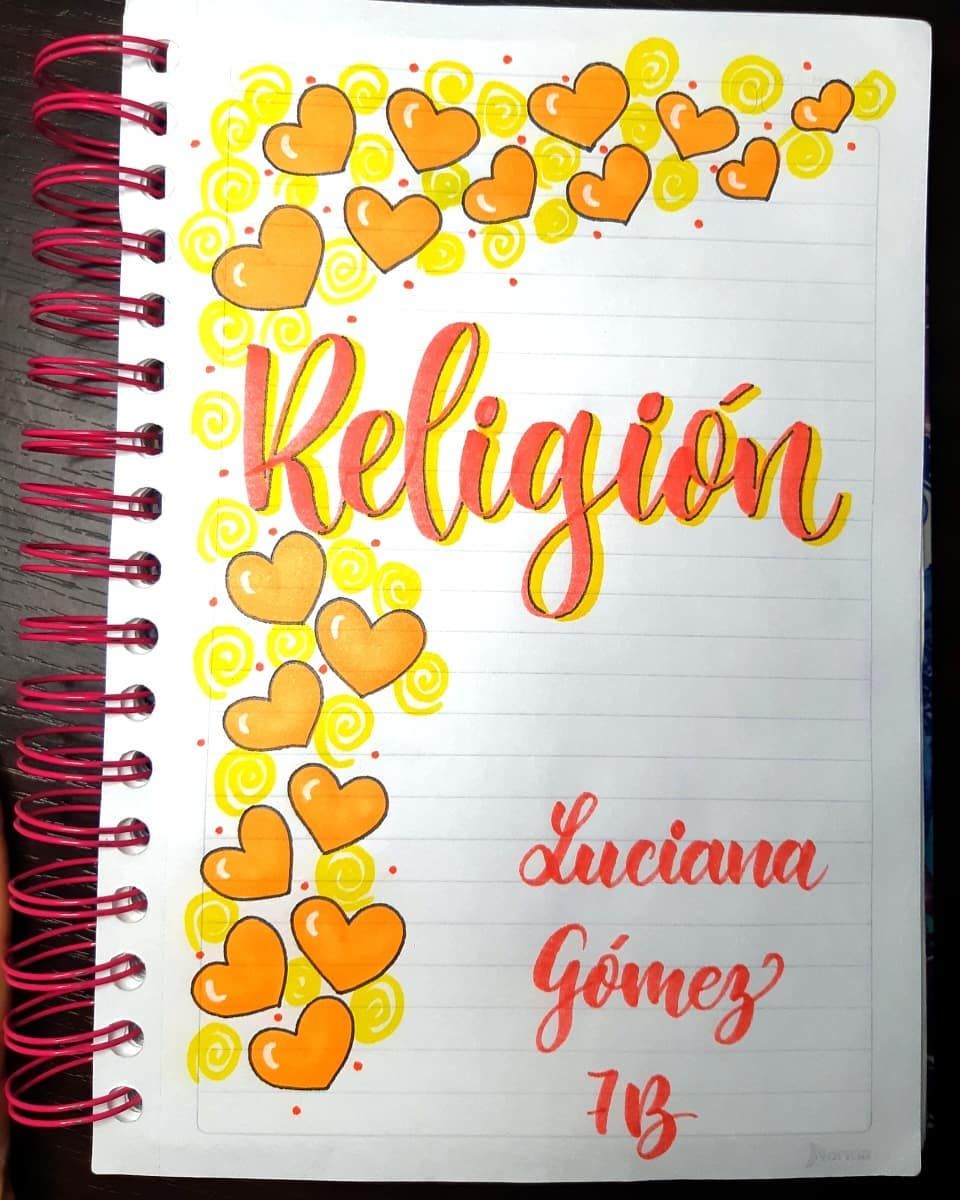 Religión
Luciana
Gómez
7B